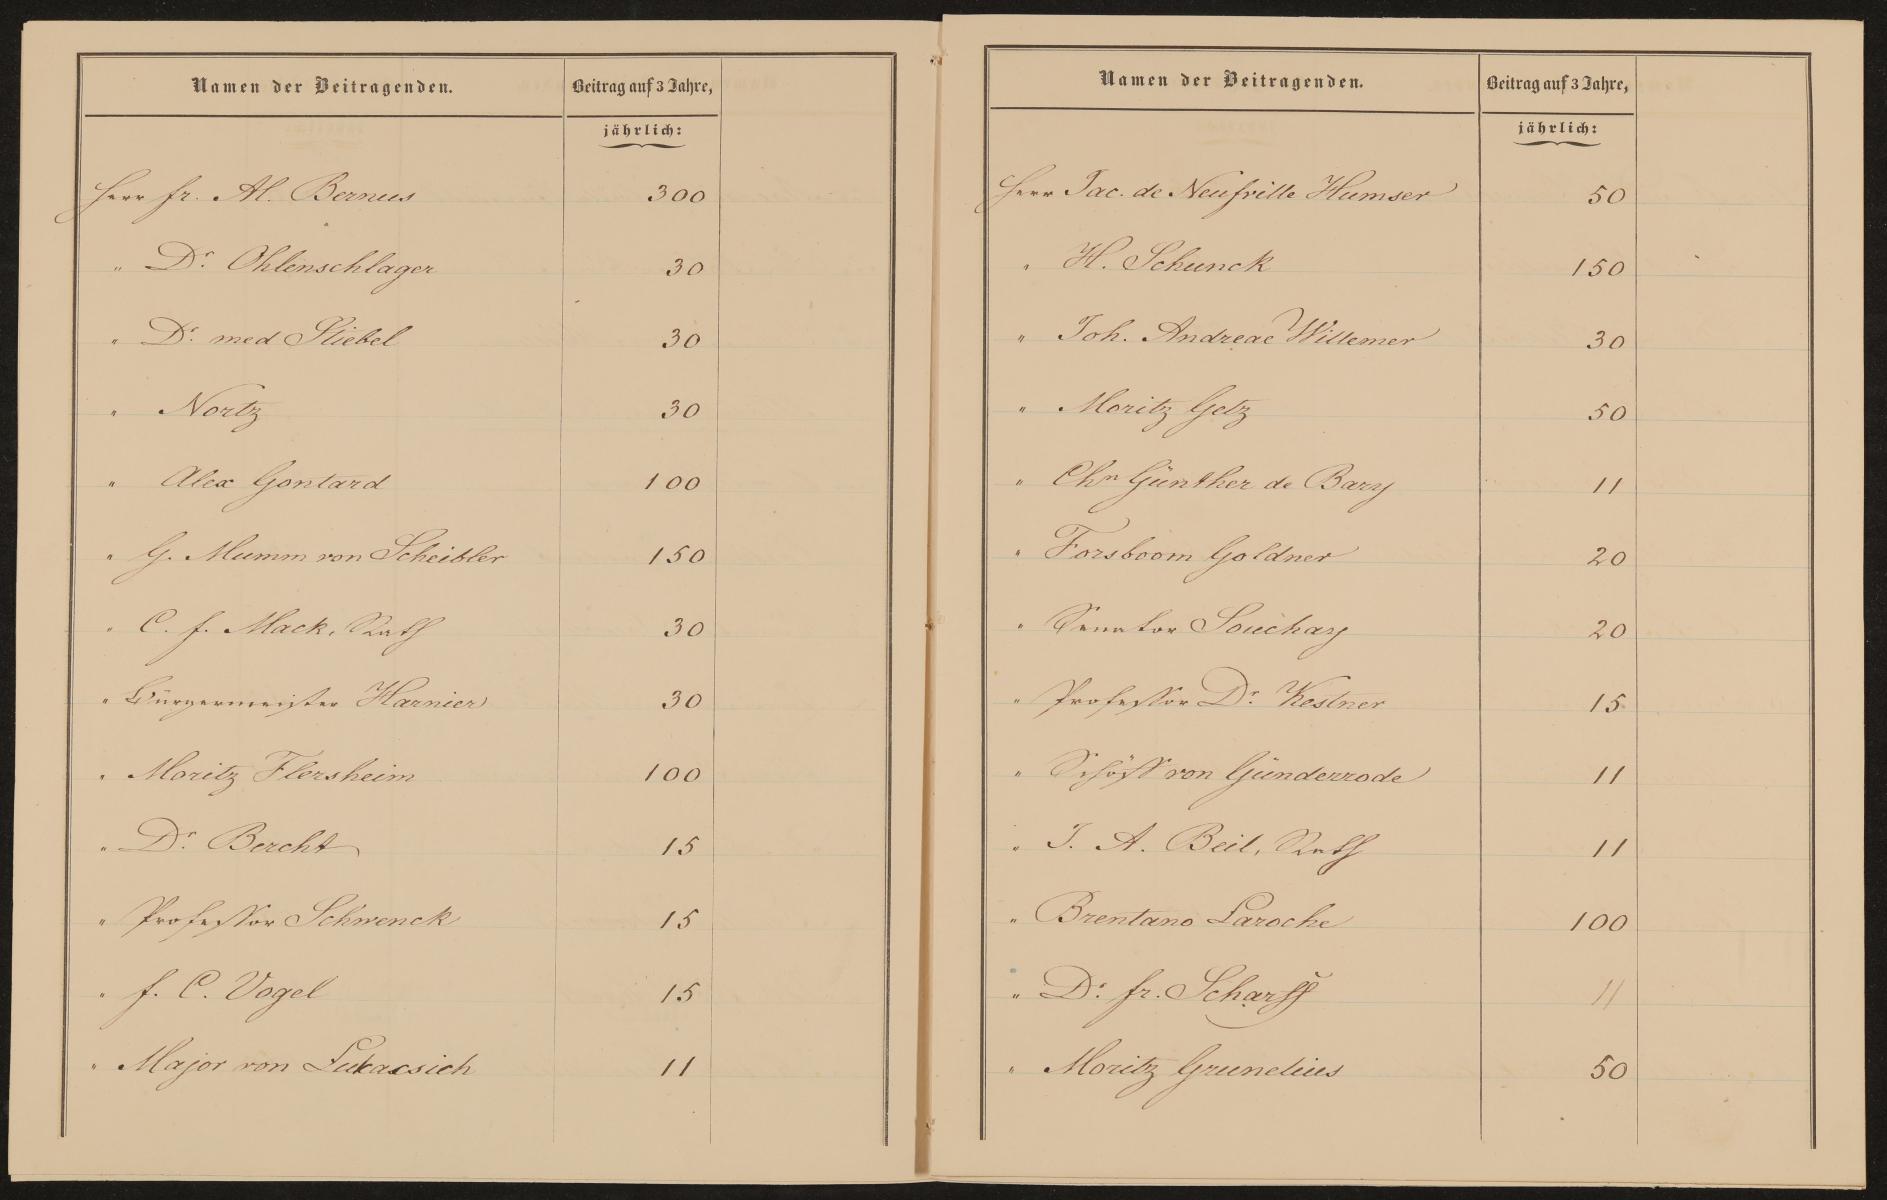 Namen der Beitragenden. Beitrag auf 3 Jahre,
jährlich:
Herr Fr. Al. Bernus 300
" Dr. Ohlenschlager 30
" Dr. med Stiebel 30
" Nortz 30
" Alex Gontard 100
" G. Mumm von Scheibler 150
" C. F. Mack, Rath 30
" Bürgermeister Harnier 30
" Moritz Flersheim 100
" Dr. Bercht 15
" Professor Schwenck 15
" F. C. Vogel 15
" Major von Lukacsich 11
Namen der Beitragenden. Beitrag auf 3 Jahre,
jährlich:
Herr Jac. de Neufville Humser 50
" H. Schunck 150
" Joh. Andreae Willemer 30
" Moritz Getz 50
" Chn Günther de Bary 11
" Forsboom Goldner 20
" Senator Souchay 20
" Professor Dr. Kestner 15
" Schöff von Günderrode 11
" J. A. Beil, Rath 11
" Brentano Laroche 100
" Dr. Fr. Scharff 11
" Moritz Grunelius 50